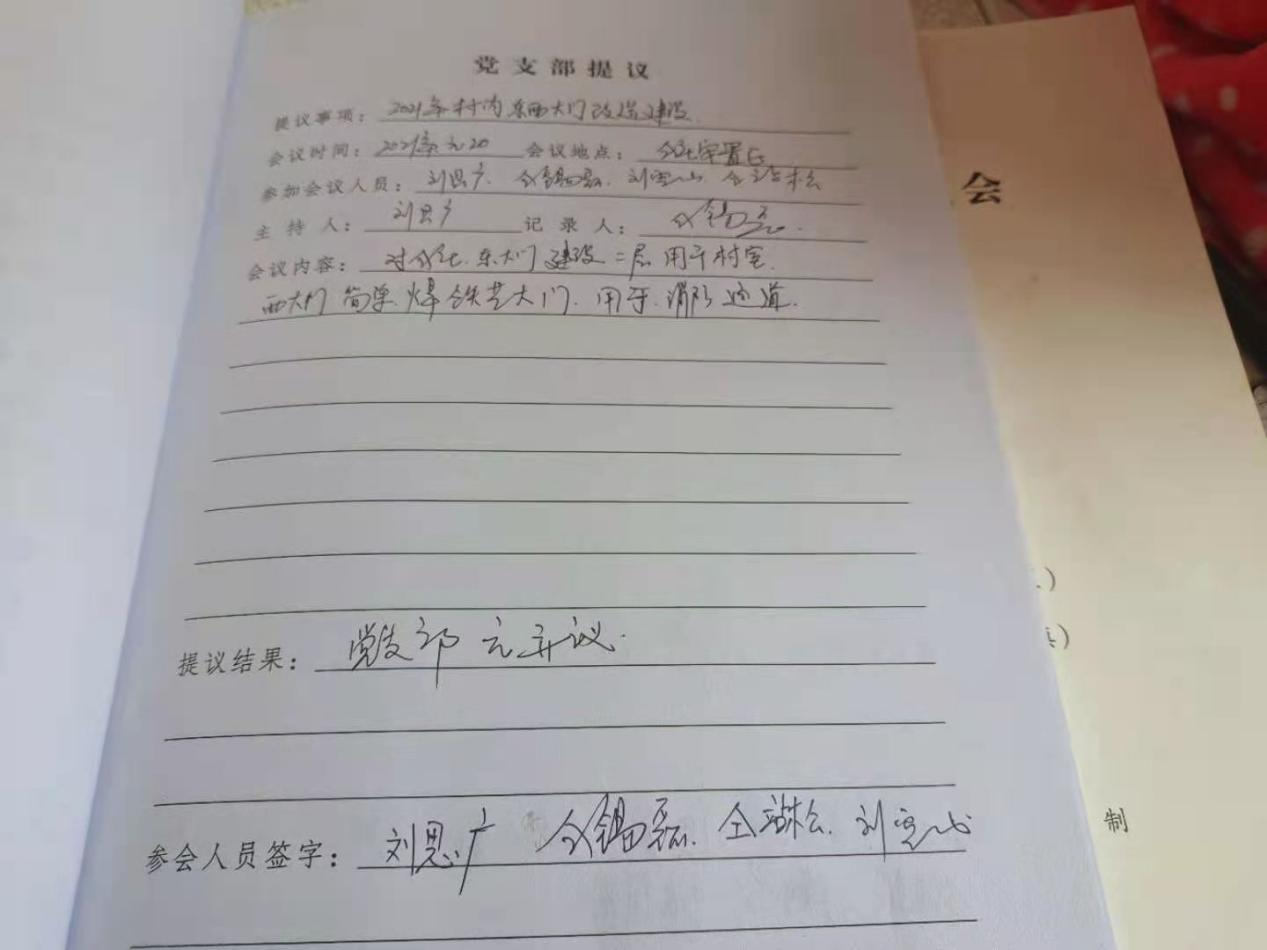 党支部提议
提议事项：2021年村内东西大门改造建设
会议时间：2021年元20 会议地点：仝庄安置区
参加会议人员：刘思广 仝锡磊 刘宪山 仝
主持人：刘思广 记录人：仝锡磊
会议内容：对仝庄东大门建设二层用于村室.
西大门简单焊铁艺大门.用于消防通道.
提议结果：党支部无异议.
参会人员签字：刘思广 仝锡磊. 仝 刘宪山
会
制